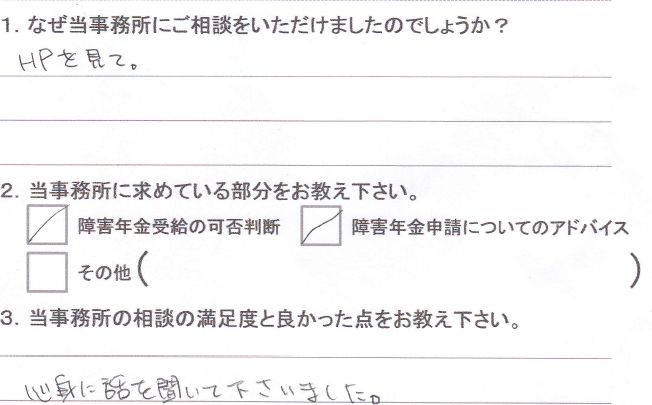 1. なぜ当事務所にご相談をいただけましたのでしょうか?
HPを見て。
2. 当事務所に求めている部分をお教え下さい。
障害年金受給の可否判断 障害年金申請についてのアドバイス
その他( )
3. 当事務所の相談の満足度と良かった点をお教え下さい。
心身に話を聞いて下さいました。